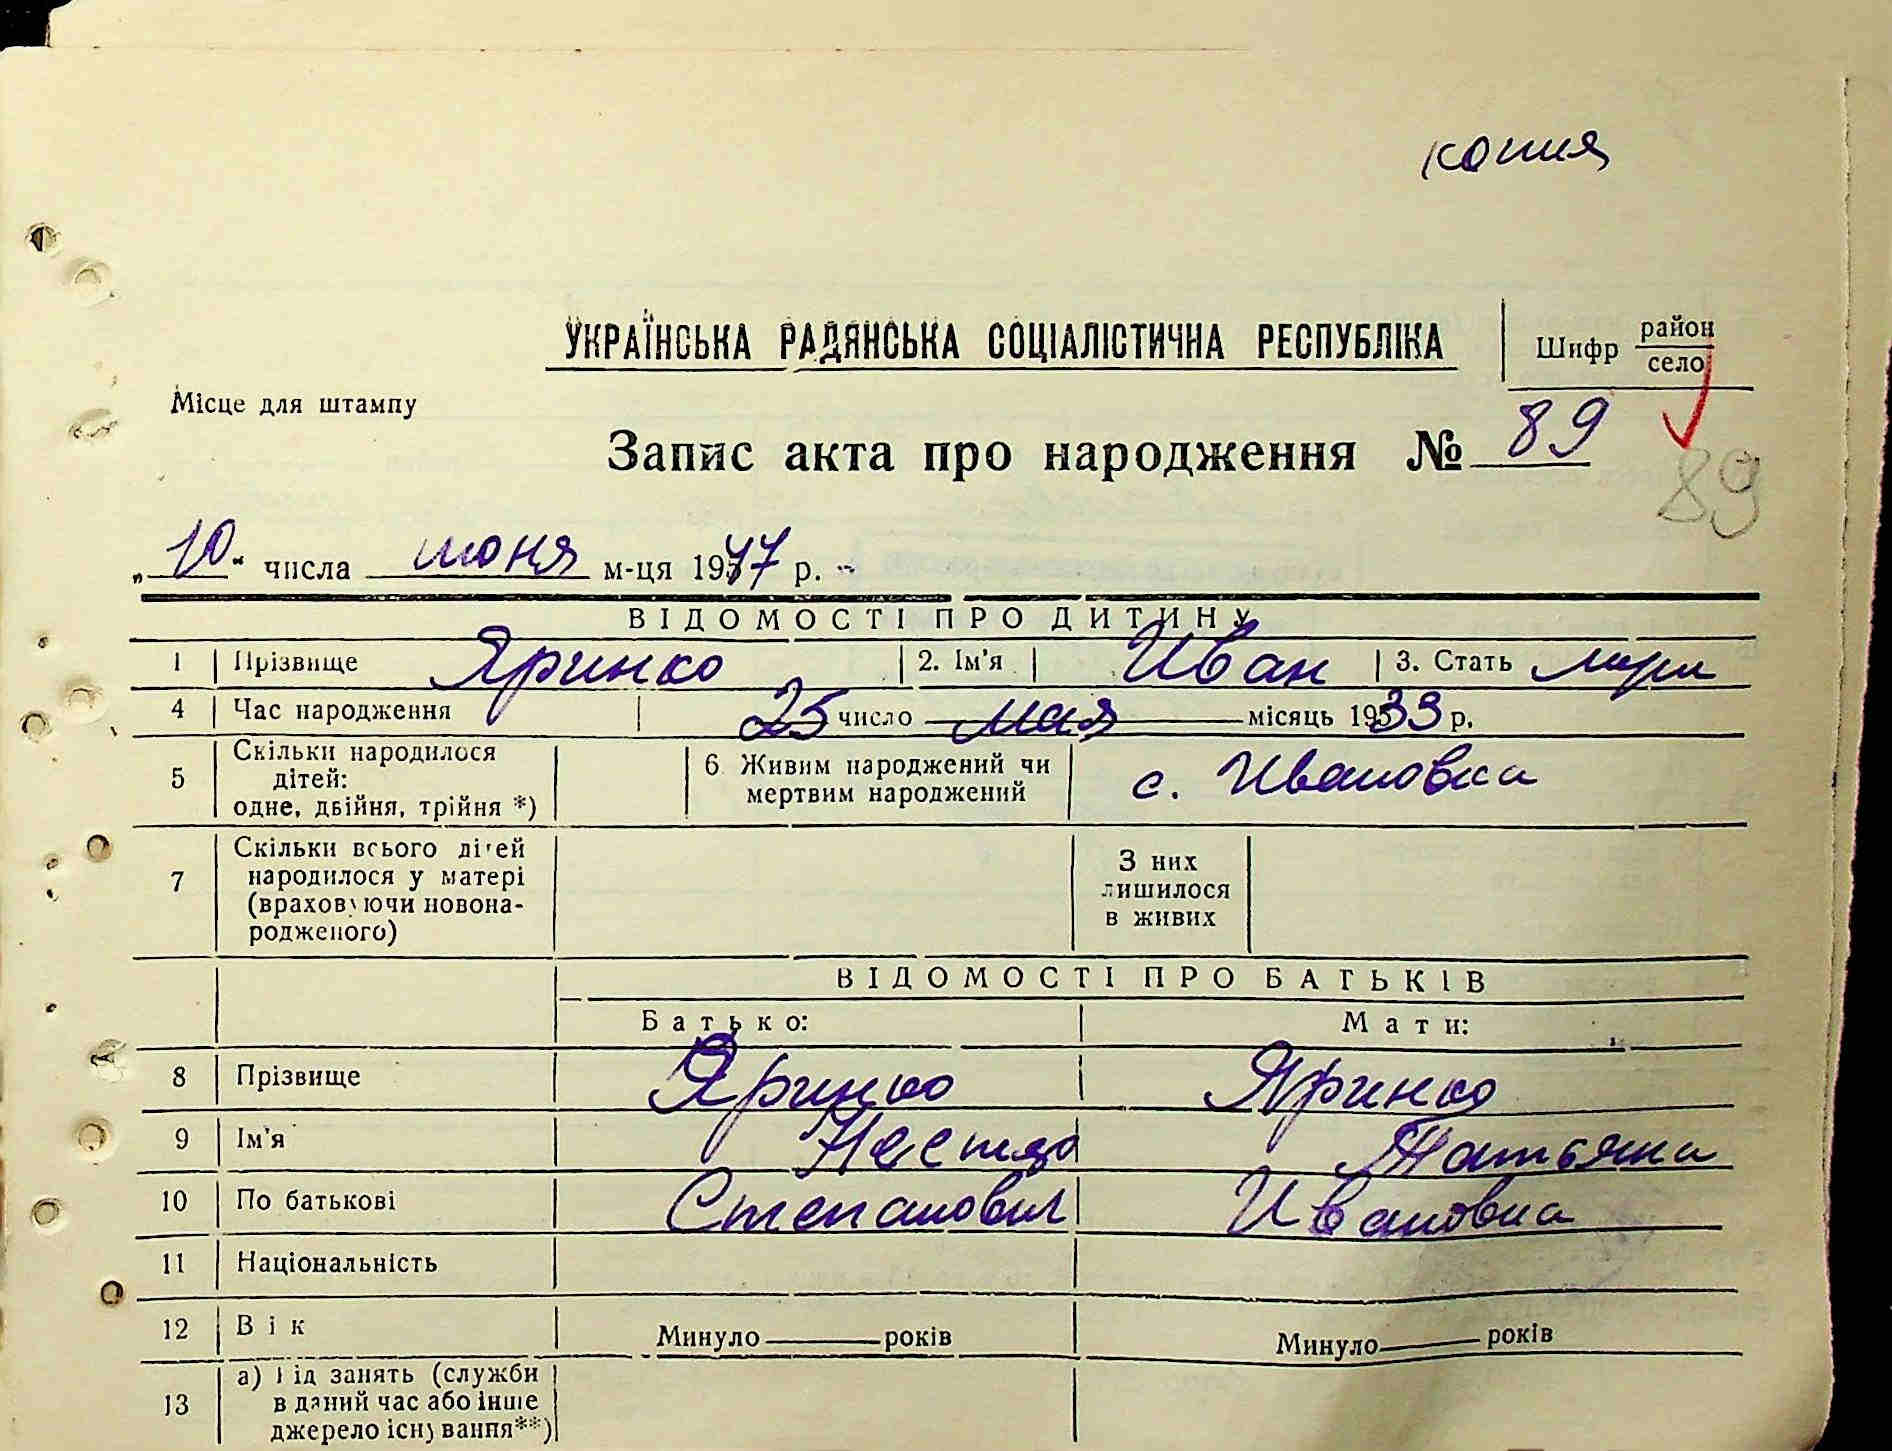 копия
УКРАЇНСЬКА РАДЯНСЬКА СОЦІАЛІСТИЧНА РЕСПУБЛІКА
Шифр район
село
Місце для штампу
Запис акта про народження № 89
89
„10“ числа июня м-ця 1977 р.
ВІДОМОСТІ ПРО ДИТИНУ
1 Прізвище Яринко 2. Ім'я Иван 3. Стать муж
4 Час народження 25 число мая місяць 1933 р.
5 Скільки народилося
дітей:
одне, двійня, трійня *)
6 Живим народжений чи
мертвим народжений
с. Ивановка
7 Скільки всього дітей
народилося у матері
(враховуючи новона-
родженого)
З них
лишилося
в живих
ВІДОМОСТІ ПРО БАТЬКІВ
Батько: Мати:
8 Прізвище Яринко Яринко
9 Ім'я Нестор Татьяна
10 По батькові Степанович Ивановна
11 Національність
12 Вік Минуло років Минуло років
13 а) Рід занять (служби
в даний час або інше
джерело існування**)